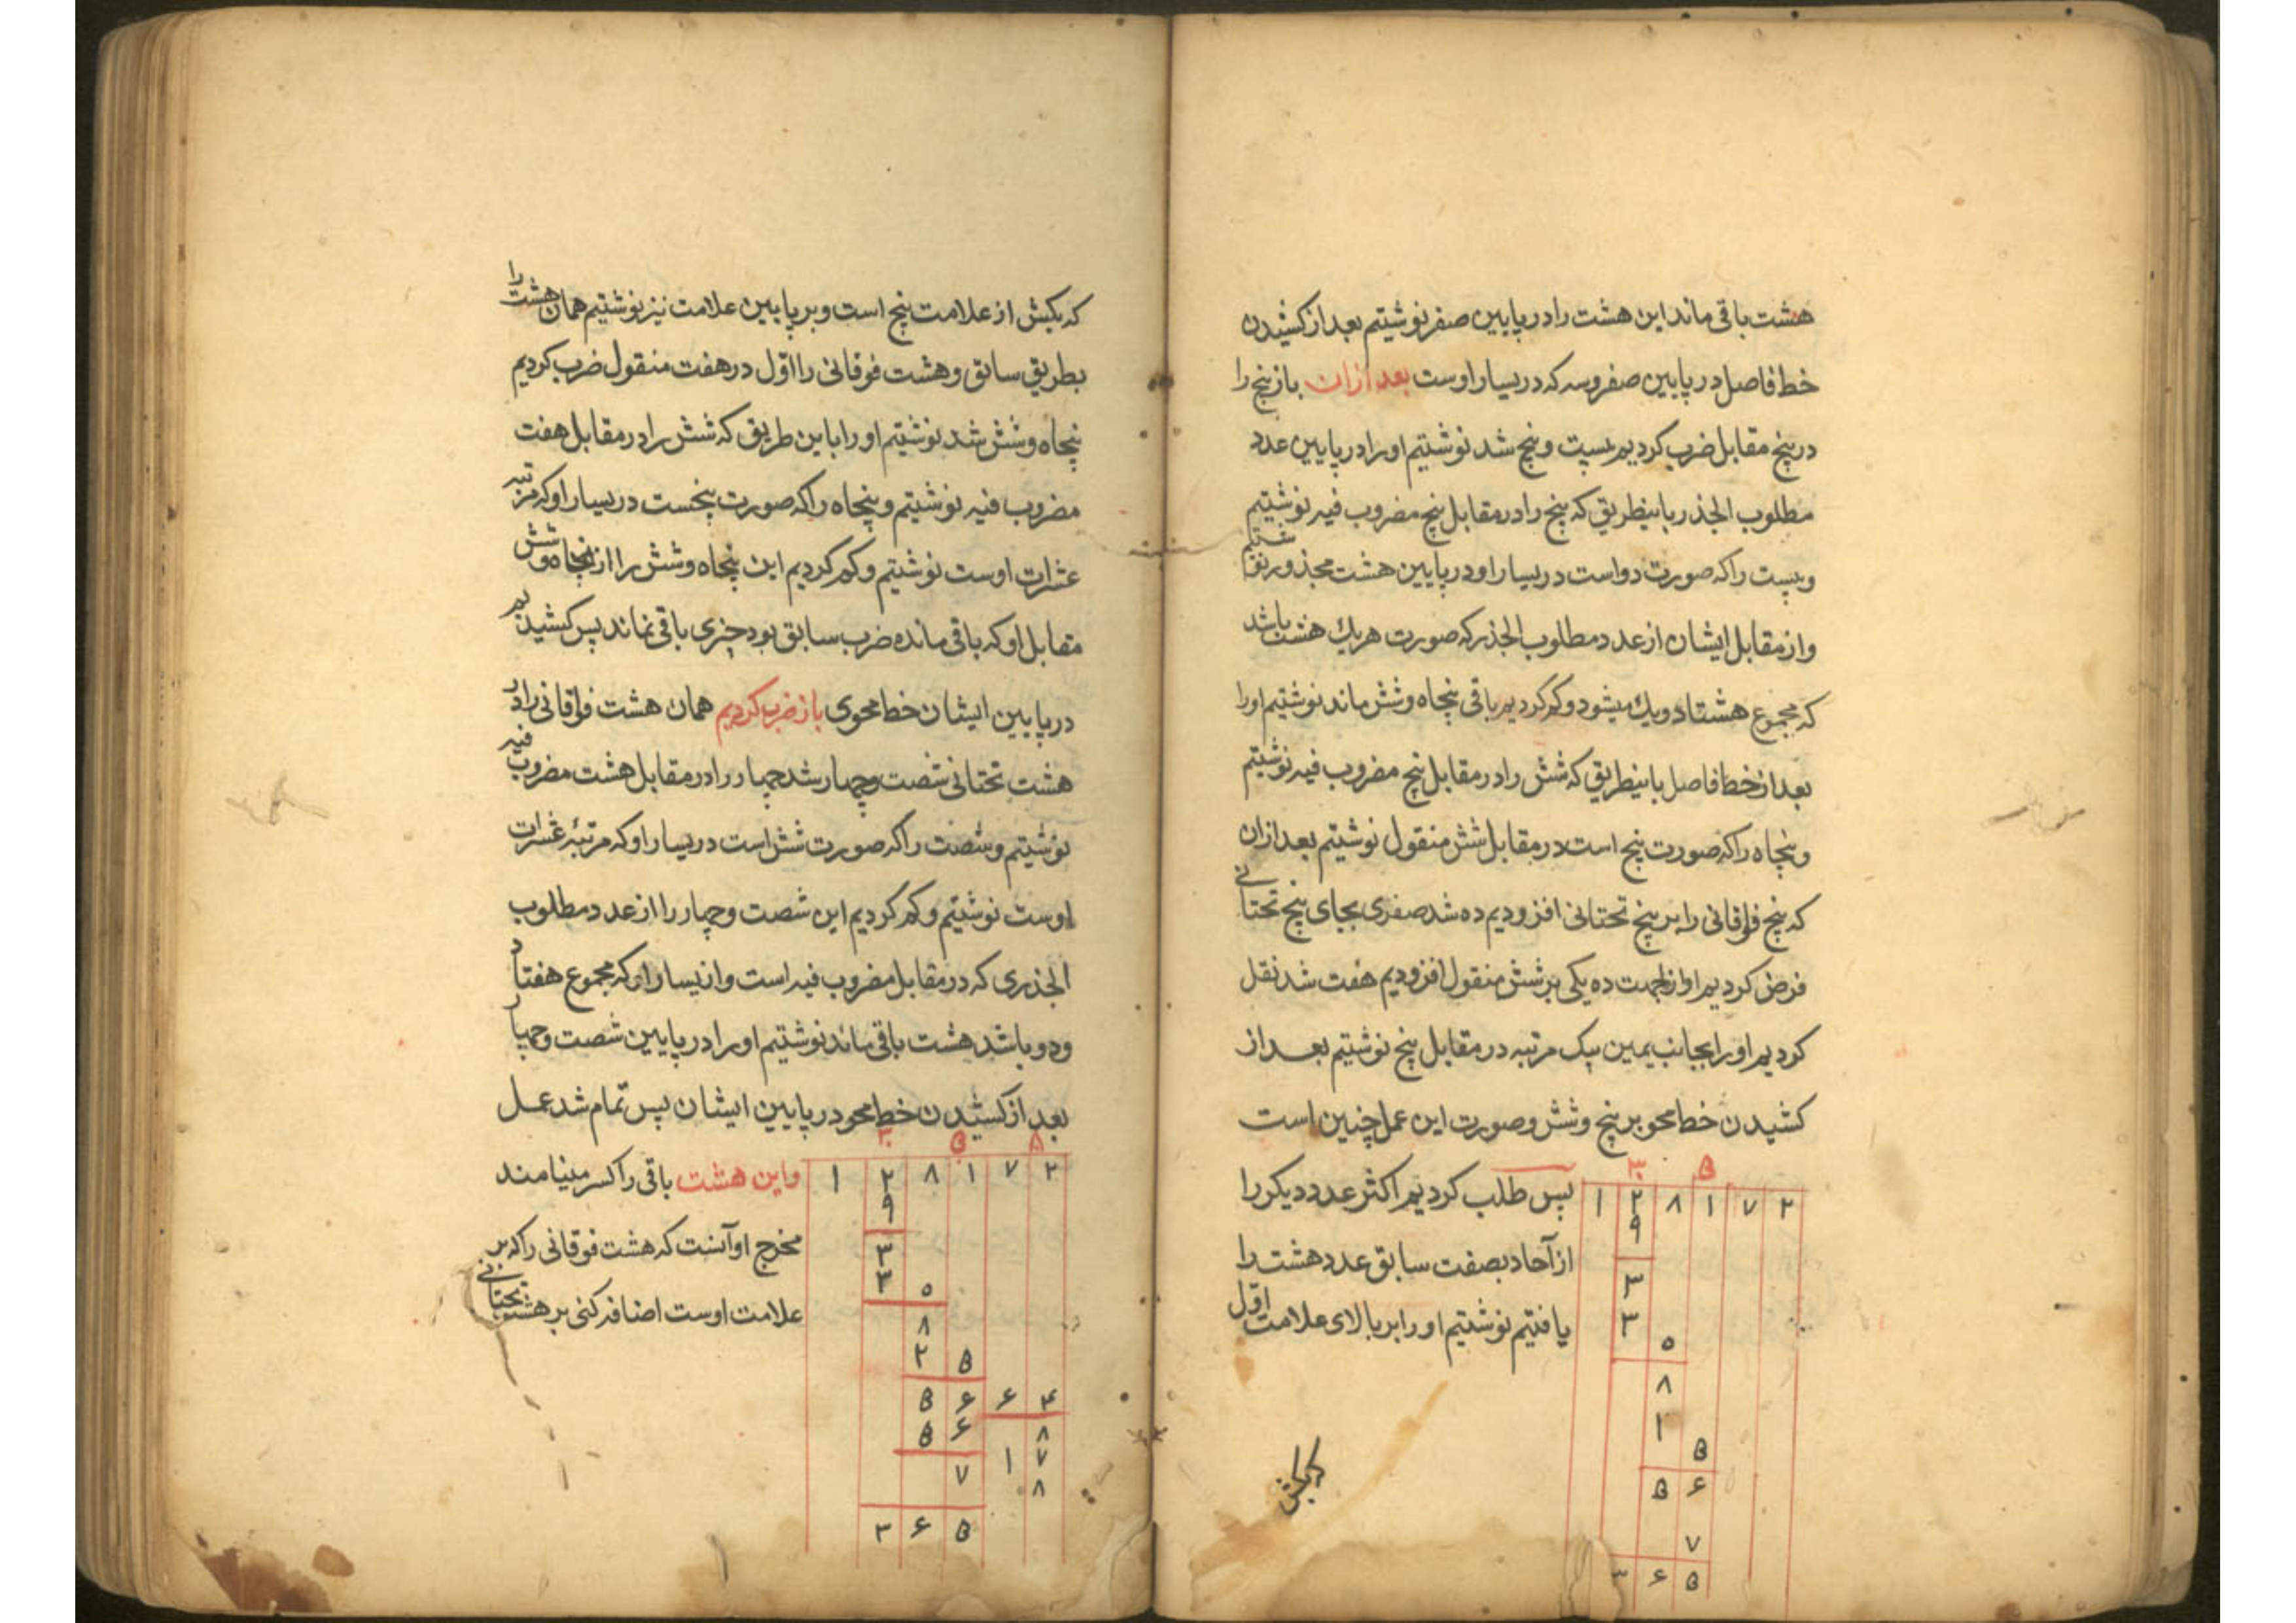 هشت باقی ماند این هشت را در پایین صفر نوشتیم بعد از کشیدن
خط فاصل در پایین صفر و سه که در یسار اوست بعد ازان باز پنج را
در پنج مقابل ضرب کردیم بیست و پنج شد نوشتیم او را در پایین عدد
مطلوب الجذر باینطریق که پنج را در مقابل پنج مضروب فیه نوشتیم
و بیست را که صورت دو است در یسار او در پایین هشت مجذور نوشتیم
و از مقابل ایشان از عدد مطلوب الجذر که صورت هر یك هشت باشد
که مجموع هشتاد و یك میشود و کم کردیم باقی پنجاه و شش ماند نوشتیم او را
بعد از خط فاصل باینطریق که شش را در مقابل پنج مضروب فیه نوشتیم
و پنجاه را که صورت پنج است در مقابل شش منقول نوشتیم بعد ازان
که پنج فوقانی را بر پنج تحتانی افزودیم ده شد صفری بجای پنج تحتانی
فرض کردیم او از جهت ده یکی بر شش منقول افزودیم هفت شد نقل
کردیم او را بجانب یمین یک مرتبه در مقابل پنج نوشتیم بعد از
کشیدن خط محو بر پنج و شش و صورت این عمل چنین است
۳ ۵
۱ ۲ ۸ ۱ ۷ ۲
پس طلب کردیم اکثر عدد دیکر را
۹
از آحاد بصفت سابق عدد هشت را
۳
یافتیم نوشتیم او را بر بالای علامت اول
۳ ۰
۸
۱ ۵
۵ ۶
۷
۳ ۶ ۵
که بکش
که بکش از علامت پنج است و بر پایین علامت نیز نوشتیم همان هشت را
بطریق سابق و هشت فوقانی را اول در هفت منقول ضرب کردیم
پنجاه و شش شد نوشتیم او را باین طریق که شش را در مقابل هفت
مضروب فیه نوشتیم و پنجاه را که صورت پنجست در یسار او که مرتبه
عشرات اوست نوشتیم و کم کردیم این پنجاه و شش را از پنجاه و شش
مقابل او که باقی مانده ضرب سابق بود چیزی باقی نماند پس کشیدیم
در پایین ایشان خط محوی باز ضرب کردیم همان هشت فوقانی را در
هشت تحتانی شصت و چهار شد چهار را در مقابل هشت مضروب فیه
نوشتیم و شصت را که صورت شش است در یسار او که مرتبهٔ عشرات
اوست نوشتیم و کم کردیم این شصت و چهار را از عدد مطلوب
الجذری که در مقابل مضروب فیه است و از یسار او که مجموع هفتاد
و دو باشد هشت باقی ماند نوشتیم او را در پایین شصت و چهار
بعد از کشیدن خط محو در پایین ایشان پس تمام شد عمل
۳ ۵ ۸
۱ ۲ ۸ ۱ ۷ ۲
و این هشت باقی را کسر مینامند
۹
مخرج او آنست که هشت فوقانی را که بر
۳
علامت اوست اضافه کنی بر هشت تحتانی
۳ ۰
۸
۲ ۵
۵ ۶ ۶ ۴
۵ ۶ ۸
۷ ۱ ۷
۸
۳ ۶ ۵